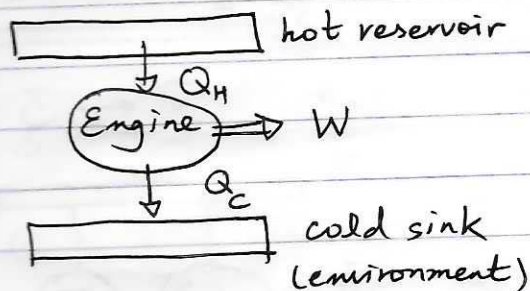 hot reservoir
Q_H
Engine W
Q_C
cold sink
(environment)